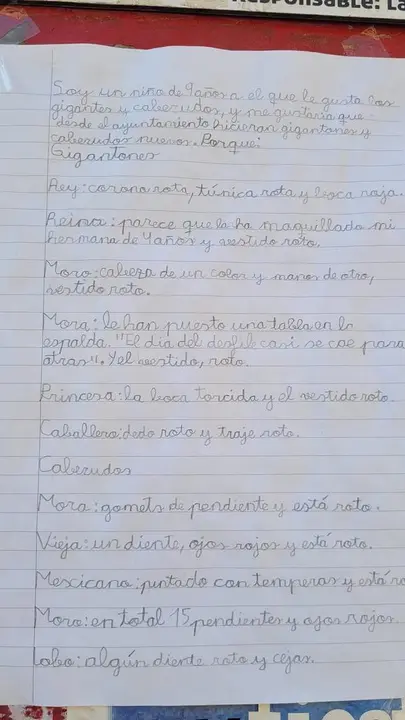 Responsable: La
Soy un niño de 9 años a el que le gusta los
gigantes y cabezudos, y me gustaría que
desde el ayuntamiento hicieran gigantones y
cabezudos nuevos. Porque:
Gigantones
Rey: corona rota, túnica rota y boca roja.
Reina: parece que la ha maquillado mi
hermana de 4 años y vestido roto.
Moro: cabeza de un color y manos de otro,
vestido roto.
Mora: le han puesto una tabla en la
espalda. "El día del desfile casi se cae para
atras". Y el vestido, roto.
Princesa: la boca torcida y el vestido roto.
Caballero: dedo roto y traje roto.
Cabezudos
Mora: gomets de pendiente y está roto.
Vieja: un diente, ojos rojos y está roto.
Mexicano: pintado con temperas y está ro
Moro: en total 15 pendientes y ojos rojos.
Lobo: algún diente roto y cejas.